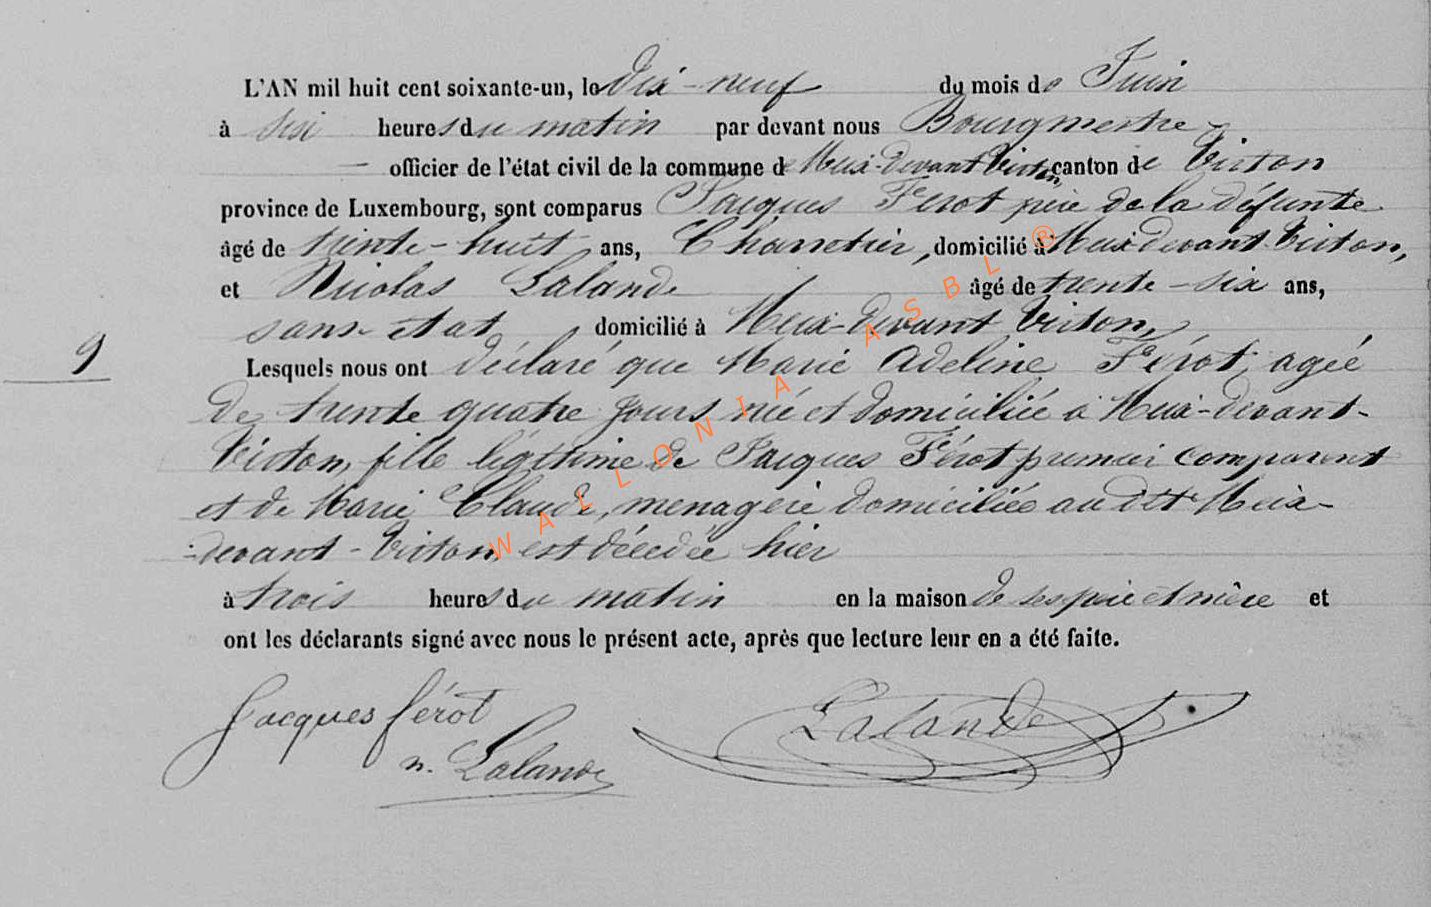 L'AN mil huit cent soixante-un, le dix-neuf du mois de Juin
à six heures du matin par devant nous Bourgmestre
officier de l'état civil de la commune de Meix-devant Virton, canton de Virton
province de Luxembourg, sont comparus Jacques Férot père de la défunte
âgé de trente-huit ans, Charretier, domicilié à Meix devant Virton,
et Nicolas Lalande âgé de trente-six ans,
sans état, domicilié à Meix-devant Virton,
9
Lesquels nous ont déclaré que Marie Adeline Férot, agée
de trente quatre jours, née et domiciliée à Meix-devant-
Virton, fille légitime de Jacques Férot premier comparant
et de Marie Claude, menagère domiciliée au dit Meix-
devant-Virton, est décédée hier
à trois heures du matin en la maison de ses père et mère et
ont les déclarants signé avec nous le présent acte, après que lecture leur en a été faite.
Jacques férot
n. Lalande
Lalande
WALLONIA ASBL ®